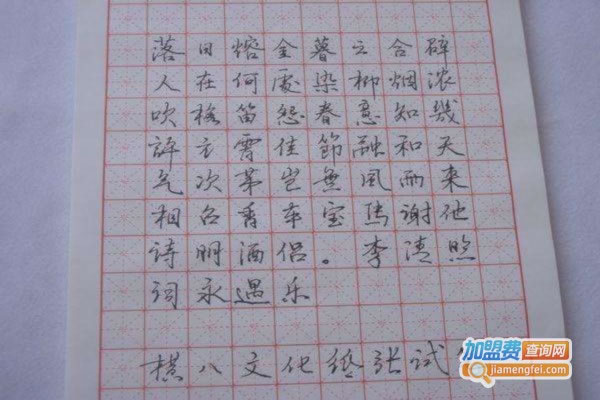 落日熔金暮云合碎
人在何處染柳烟浓
吹梅笛怨春意知幾
許元霄佳節融和天
气次第岂無風雨来
相召香车宝馬谢他
诗朋酒侣。李清照
词永遇乐
横八文化纸张试
加盟费查询网
jiamengfei.com